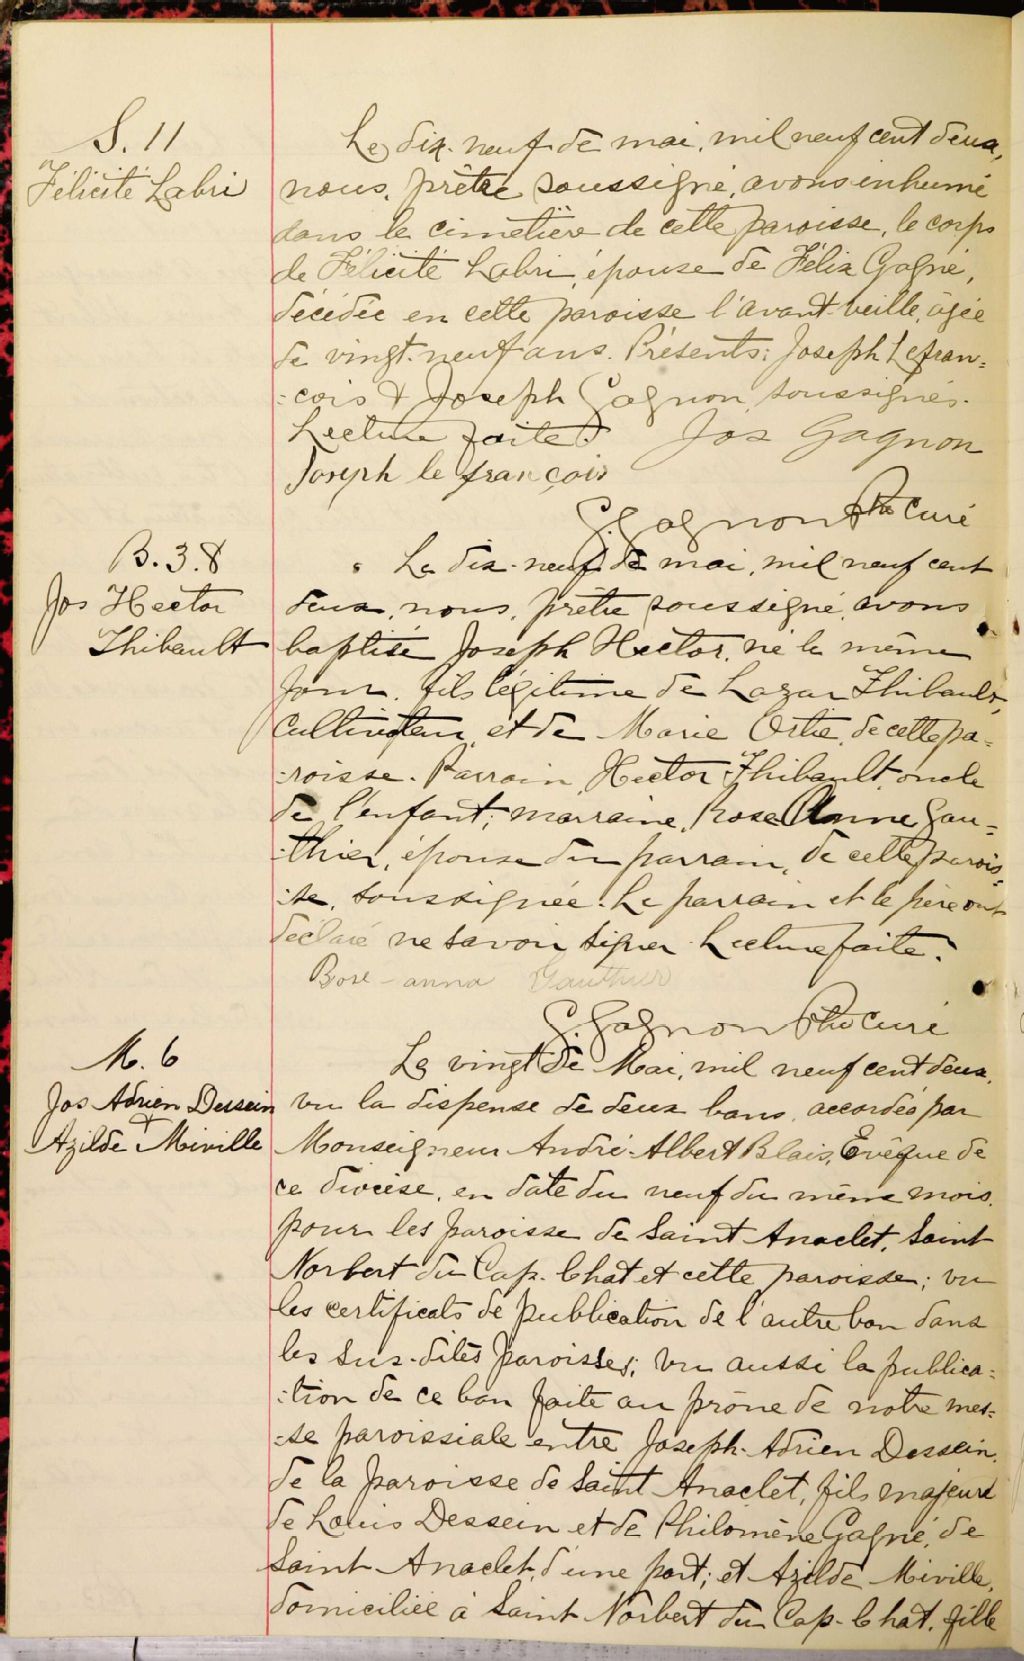 S. 11
Félicité Labri
Le dix-neuf de mai, mil neuf cent deux,
nous, prêtre soussigné, avons inhumé
dans le cimetière de cette paroisse, le corps
de Félicité Labri, épouse de Félix Gagné,
décédée en cette paroisse l'avant-veille, âgée
de vingt-neuf ans. Présents: Joseph Lefran=
=cois & Joseph Gagnon, soussignés.
Lecture faite. Jos Gagnon
Joseph le françois
G. Gagnon Ptre Curé
B. 38
Jos Hector
Thibault
Le dix-neuf de mai, mil neuf cent
deux, nous, prêtre soussigné, avons
baptisé Joseph Hector, né le même
jour, fils légitime de Lazar Thibault,
cultivateur, et de Marie Ortie, de cette pa=
=roisse. Parrain, Hector Thibault, oncle
de l'enfant; marraine, Rose Anne Gau=
=thier, épouse du parrain, de cette parois=
=se, soussignée. Le parrain et le père ont
déclaré ne savoir signer. Lecture faite.
Rose-anna Gauthier
G. Gagnon Ptre Curé
M. 6
Jos Adrien Dessein
+
Azilde Miville
Le vingt de Mai, mil neuf cent deux,
vu la dispense de deux bans, accordée par
Monseigneur André-Albert Blais, Evêque de
ce diocèse, en date du neuf du même mois,
pour les paroisse de Saint Anaclet, Saint
Norbert du Cap-Chat et cette paroisse; vu
les certificats de publication de l'autre ban dans
les sus-dites paroisses; vu aussi la publica=
=tion de ce ban faite au prône de notre mes=
=se paroissiale entre Joseph-Adrien Dessein,
de la paroisse de Saint Anaclet, fils majeur
de Louis Dessein et de Philomène Gagné, de
Saint Anaclet, d'une part; et Azilde Miville,
domiciliée à Saint Norbert du Cap-Chat, fille